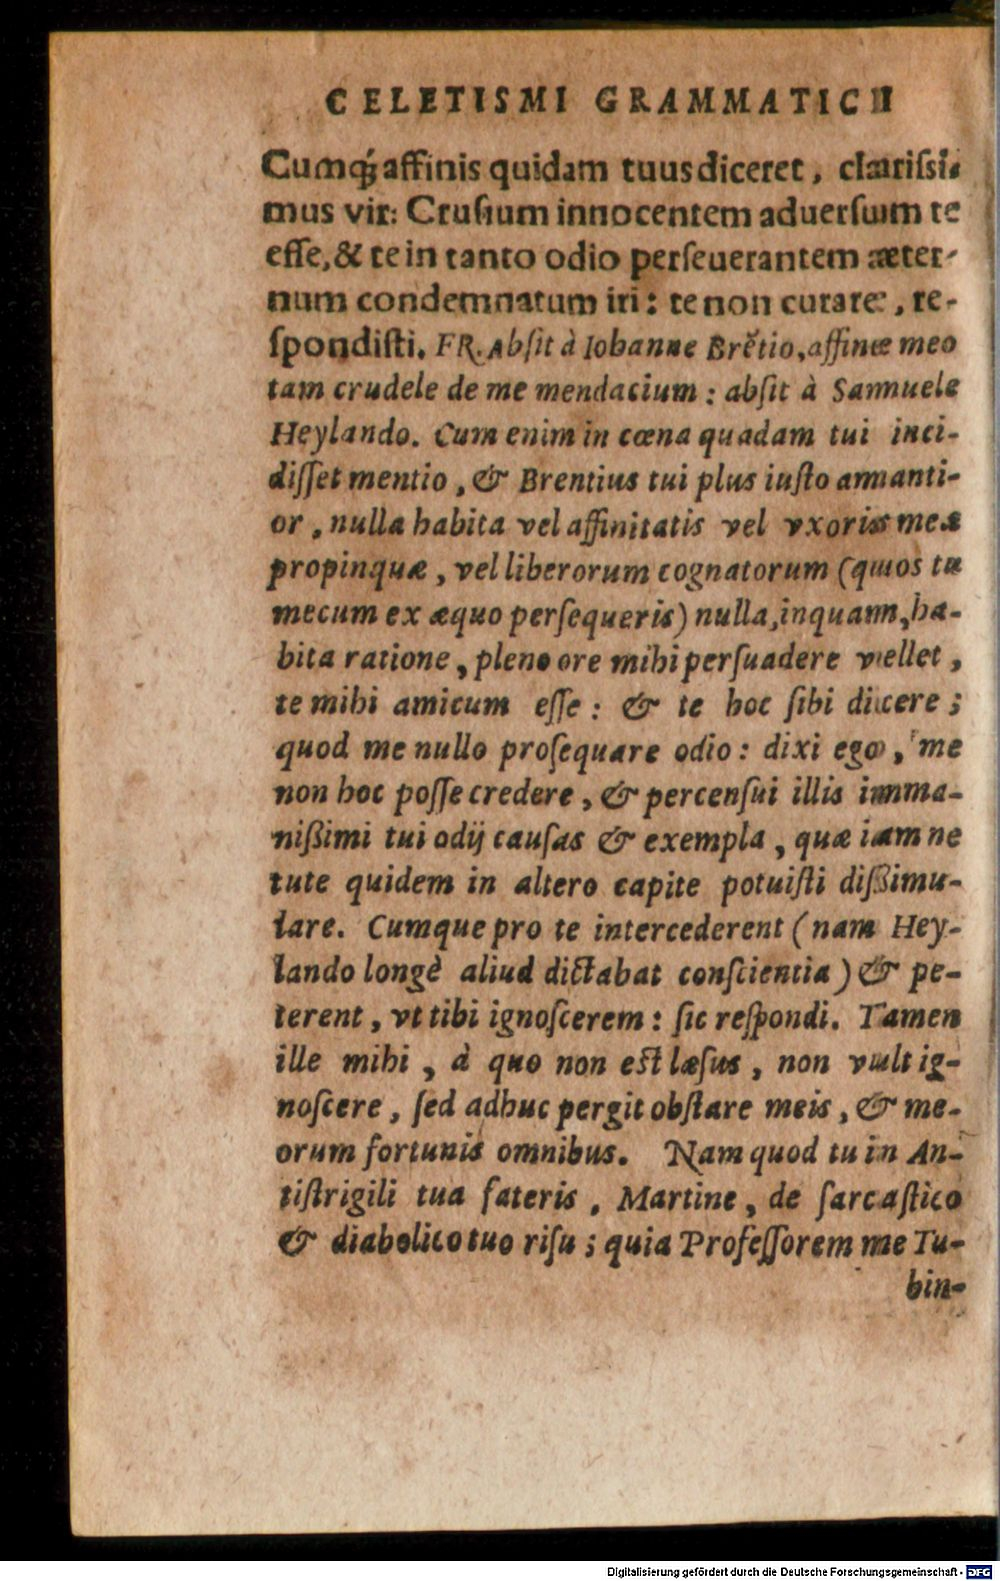 CELETISMI GRAMMATICI
Cumq́; affinis quidam tuus diceret, clarissi-
mus vir: Crusium innocentem aduersum te
esse, & te in tanto odio perseuerantem æter-
num condemnatum iri: te non curare, re-
spondisti. FR. Absit à Iohanne Brẽtio, affine meo
tam crudele de me mendacium: absit à Samuele
Heylando. Cum enim in cœna quadam tui inci-
disset mentio, & Brentius tui plus iusto amanti-
or, nulla habita vel affinitatis vel vxoris meæ
propinquæ, vel liberorum cognatorum (quos tu
mecum ex æquo persequeris) nulla, inquam, ha-
bita ratione, pleno ore mihi persuadere vellet,
te mihi amicum esse: & te hoc sibi dicere;
quod me nullo prosequare odio: dixi ego, me
non hoc posse credere, & percensui illis imma-
nißimi tui odij causas & exempla, quæ iam ne
tute quidem in altero capite potuisti dißimu-
lare. Cumque pro te intercederent (nam Hey-
lando longè aliud dictabat conscientia) & pe-
terent, vt tibi ignoscerem: sic respondi. Tamen
ille mihi, à quo non est læsus, non vult ig-
noscere, sed adhuc pergit obstare meis, & me-
orum fortunis omnibus. Nam quod tu in An-
tistrigili tua fateris, Martine, de sarcastico
& diabolico tuo risu; quia Professorem me Tu-
bin-
Digitalisierung gefördert durch die Deutsche Forschungsgemeinschaft - DFG